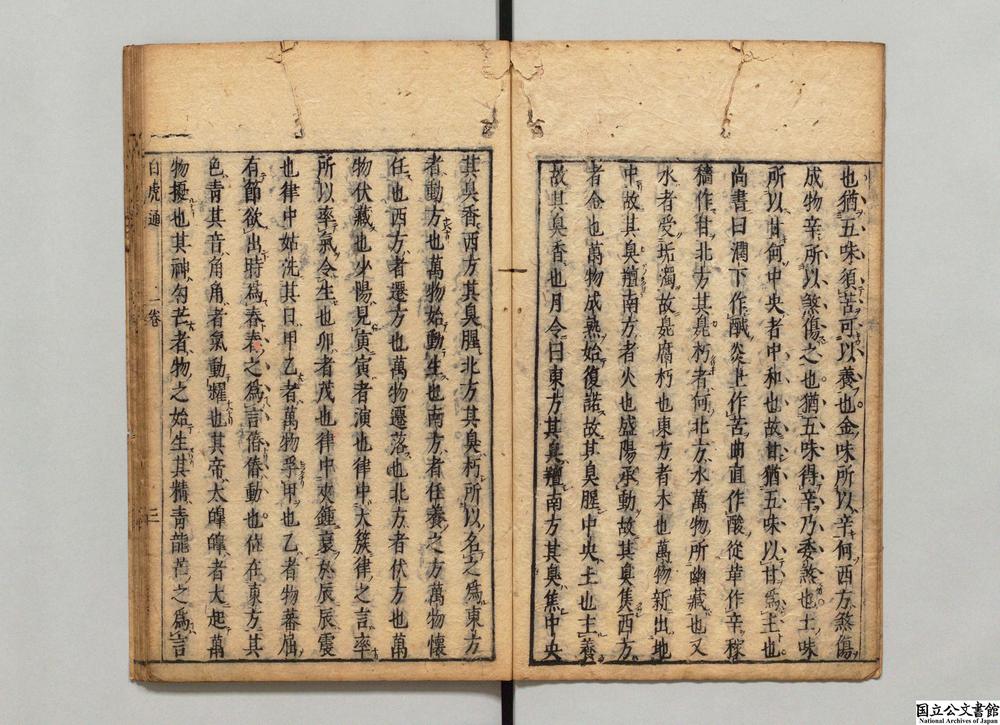 也猶五味須苦可以養也金味所以辛何西方煞傷
成物辛所以煞傷之也猶五味得辛乃委煞也土味
所以甘何中央者中和也故甘猶五味以甘爲主也
尚書曰潤下作鹹炎上作苦曲直作酸從革作辛稼
穡作甘北方其臭朽者何北方水萬物所幽藏也又
水者受垢濁故臭腐朽也東方者木也萬物新出地
中故其臭羶南方者火也盛陽承動故其臭焦西方
者金也萬物成熟始復諾故其臭腥中央土也主養
故其臭香也月令曰東方其臭羶南方其臭焦中央
其臭香西方其臭腥北方其臭朽所以名之爲東方
者動方也萬物始動生也南方者任養之方萬物懷
任也西方者遷方也萬物遷落也北方者伏方也萬
物伏藏也少陽見寅寅者演也律中大簇律之言率
所以率氣令生也卯者茂也律中夾鍾衰於辰辰震
也律中姑洗其日甲乙者萬物孚甲也乙者物蕃屈
有節欲出時爲春春之爲言偆偆動也位在東方其
色青其音角角者氣動耀也其帝太皥皥者大起萬
物擾也其神勾芒者物之始生其精青龍芒之爲言
白虎通 二卷 三
国立公文書館
National Archives of Japan